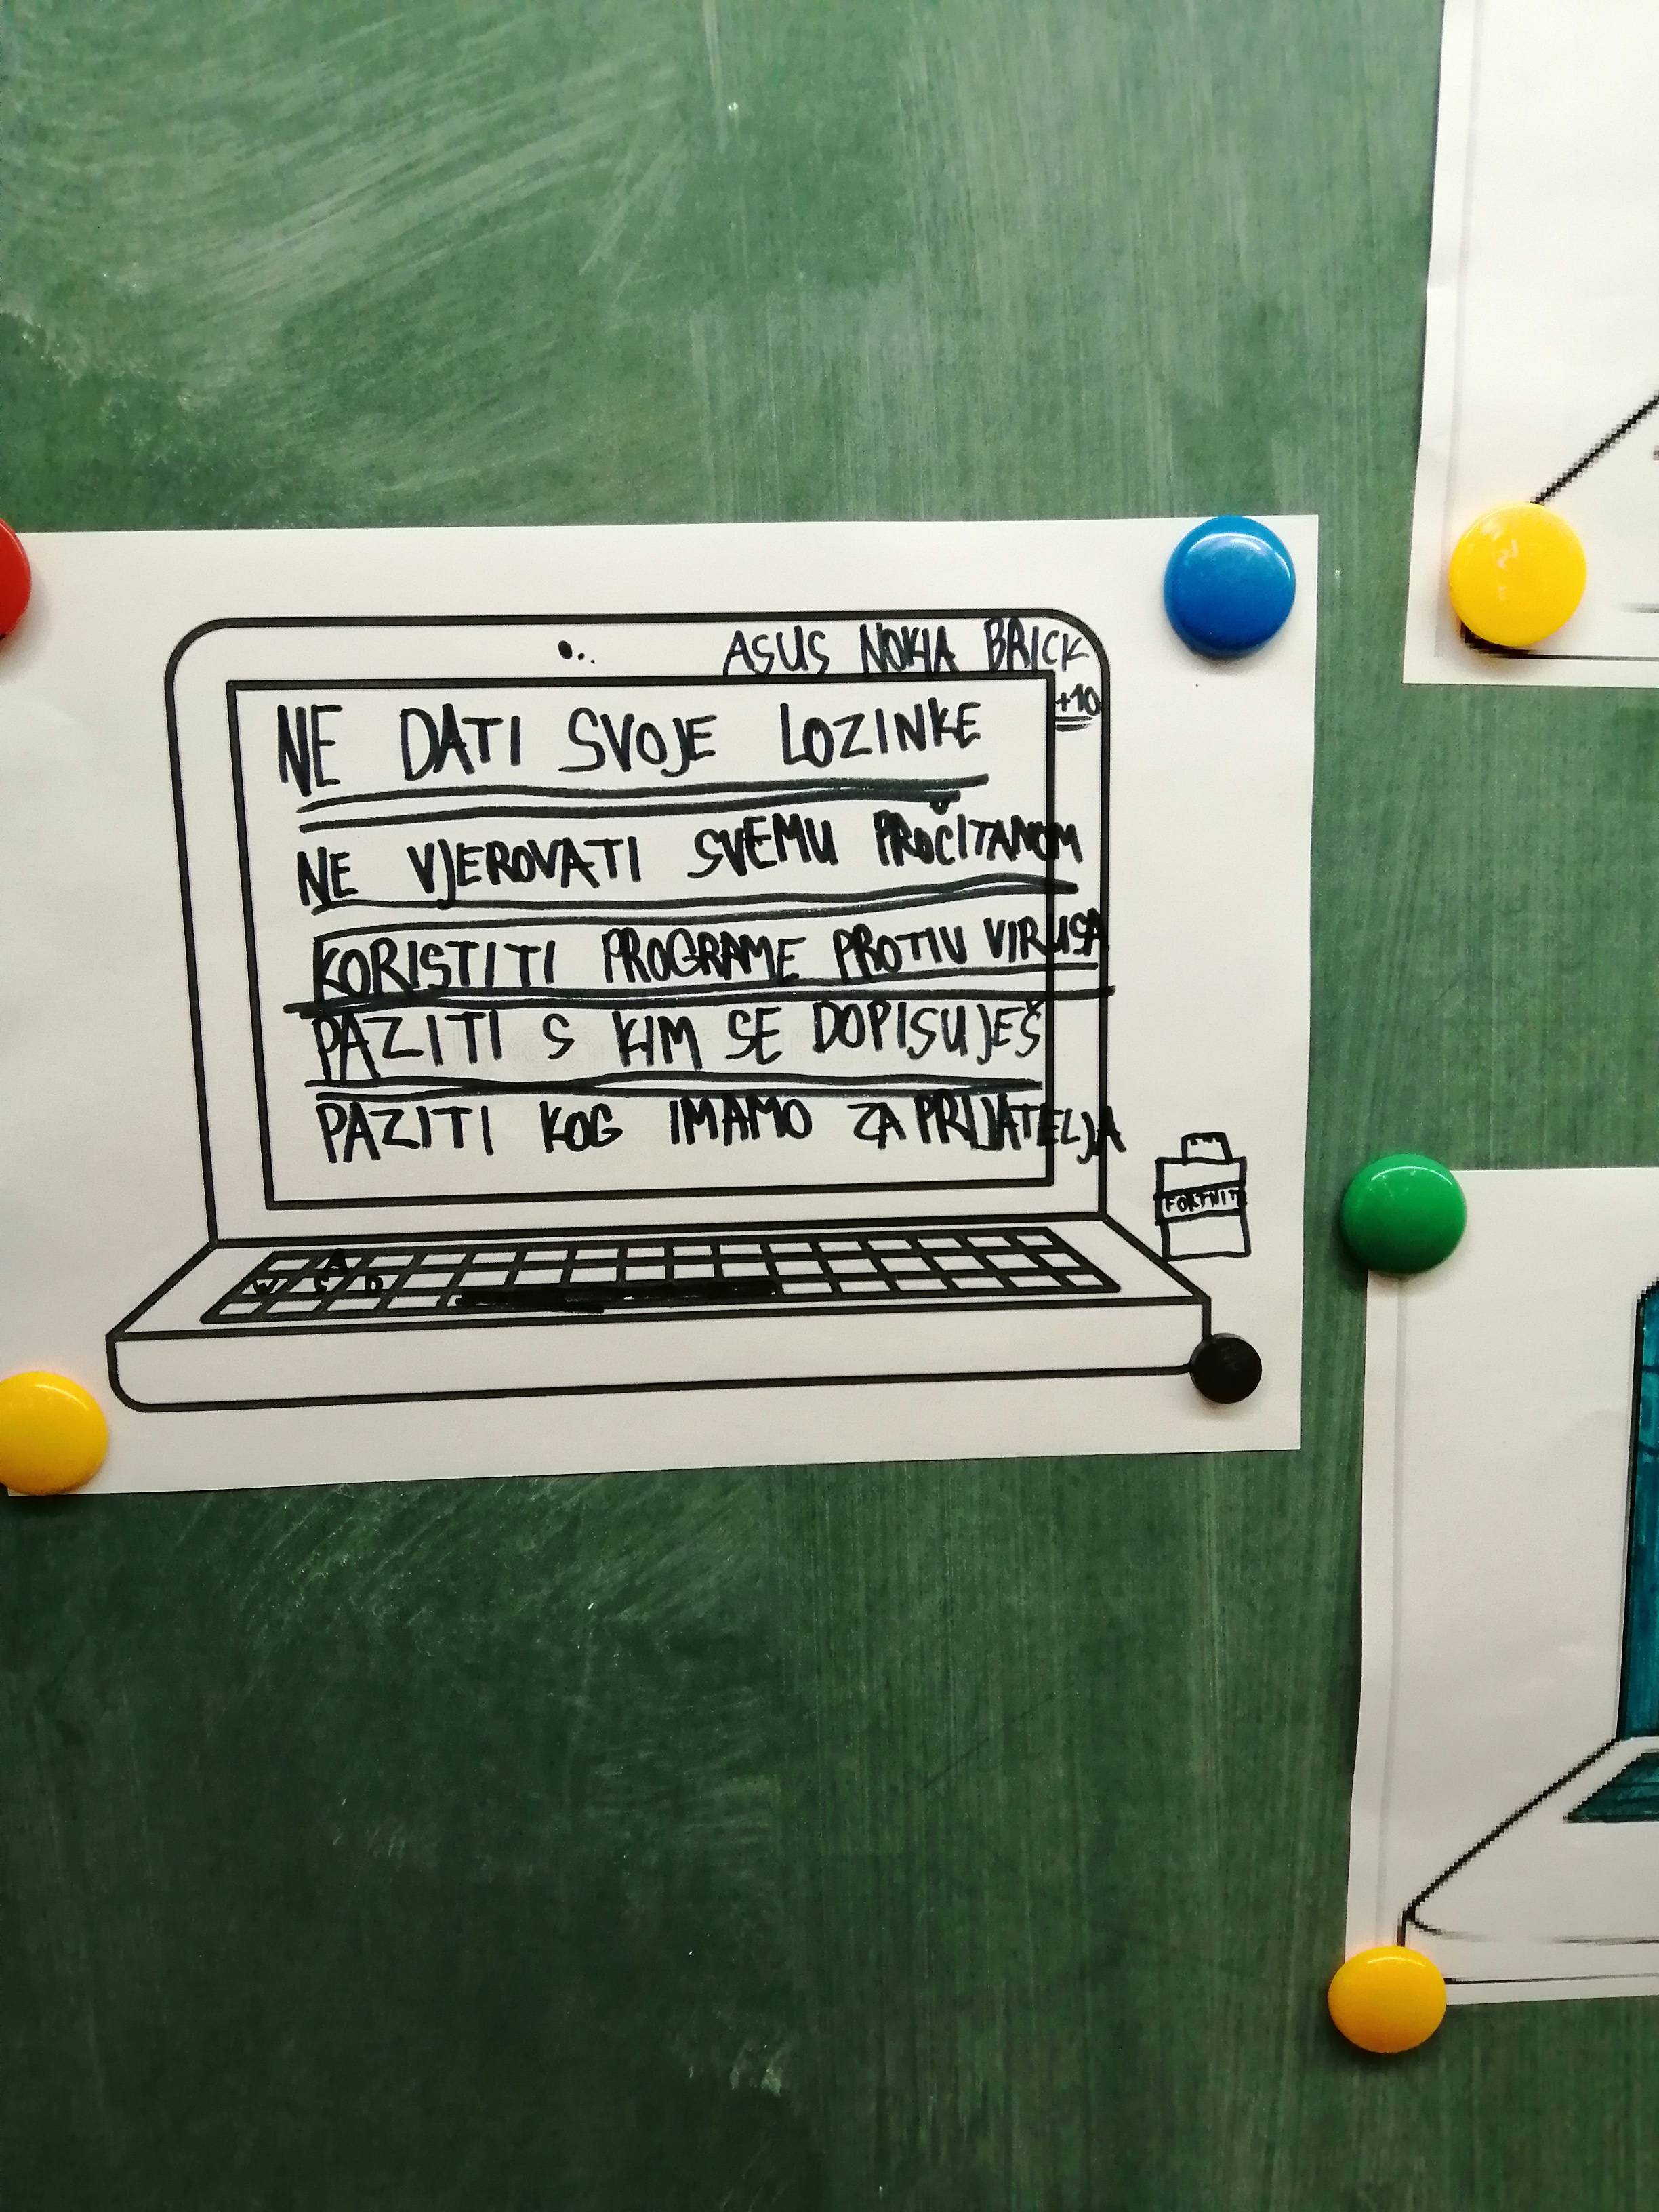 ASUS NOKIA BRICK
+10
NE DATI SVOJE LOZINKE
NE VJEROVATI SVEMU PROČITANOM
KORISTITI PROGRAME PROTIV VIRUSA
PAZITI S KIM SE DOPISUJEŠ
PAZITI KOG IMAMO ZA PRIJATELJA
FORTNIT
A
W S D